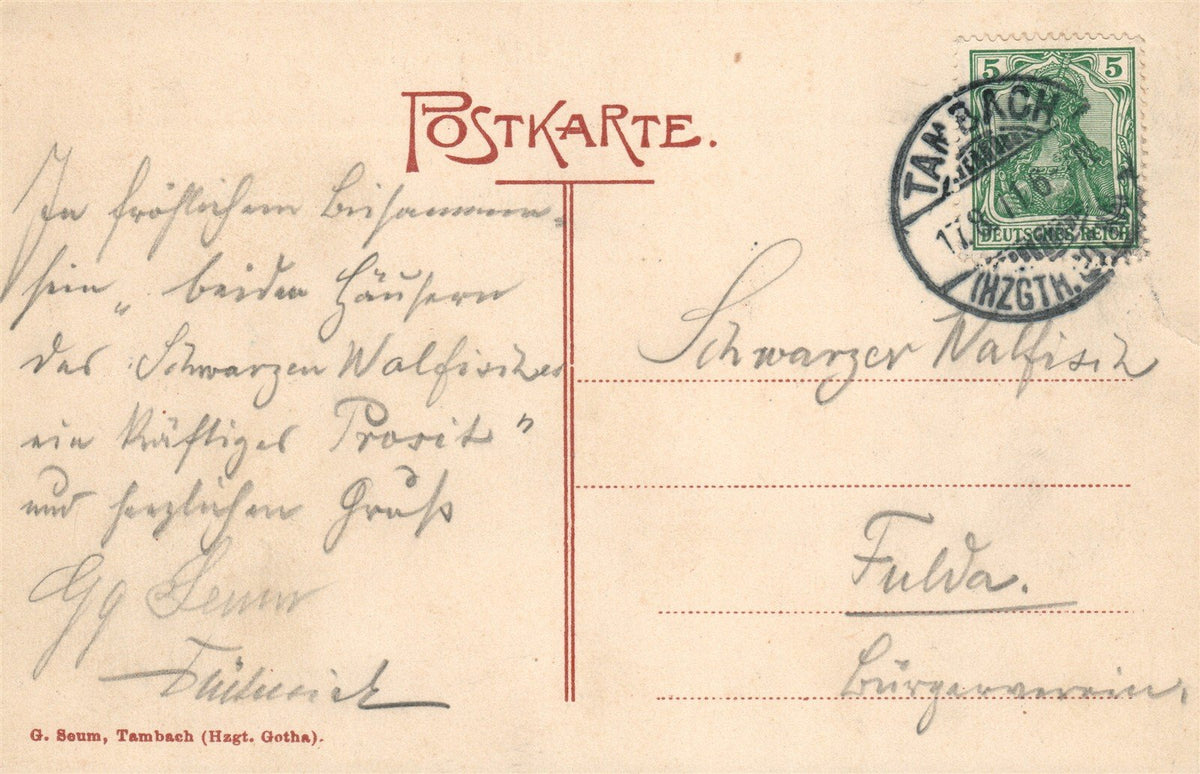 POSTKARTE.
5 5
DEUTSCHES REICH
TAMBACH
17.8. 10 6
(HZGTH.
In fröhlichem Beisammen-
sein „ beiden Häusern
des Schwarzen Walfisches
ein kräftiges Prosit"
und herzlichen Gruß
Gg Seum
Schwarzer Walfisch
Fulda.
Bürgerverein.
G. Seum, Tambach (Hzgt. Gotha).